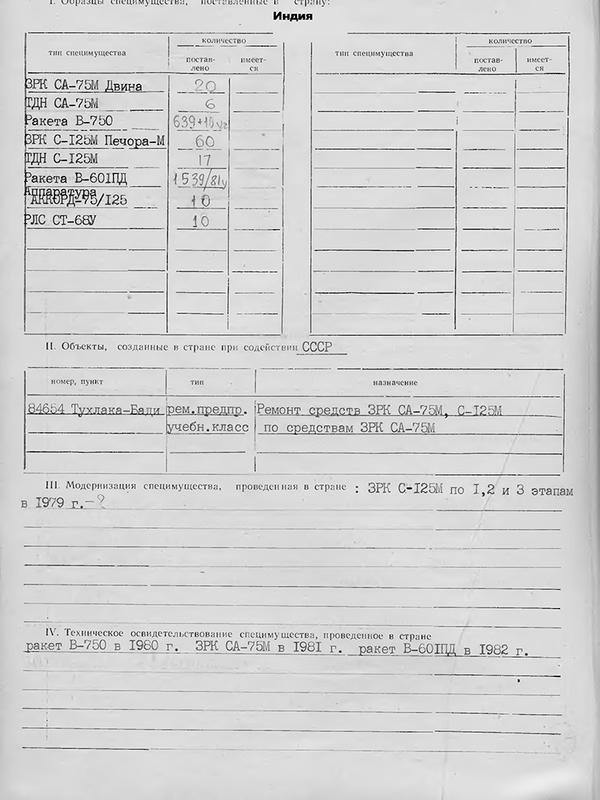 I. Образцы специмущества, поставленные в страну:
Индия
тип специмущества
количество
постав-
лено
имеет-
ся
тип специмущества
количество
постав-
лено
имеет-
ся
ЗРК СА-75М Двина 20
ТДН СА-75М 6
Ракета В-750 639+10
ЗРК С-125М Печора-М 60
ТДН С-125М 17
Ракета В-601ПД 1539/81у
Аппаратура
"АККОРД-75/125 10
РЛС СТ-68У 10
II. Объекты, созданные в стране при содействии СССР
номер, пункт тип назначение
84654 Тухлака-Бади рем.предпр. Ремонт средств ЗРК СА-75М, С-125М
учебн.класс по средствам ЗРК СА-75М
III. Модернизация специмущества, проведенная в стране : ЗРК С-125М по 1,2 и 3 этапам
в 1979 г.-?
IV. Техническое освидетельствование специмущества, проведенное в стране
ракет В-750 в 1980 г. ЗРК СА-75М в 1981 г. ракет В-601ПД в 1982 г.